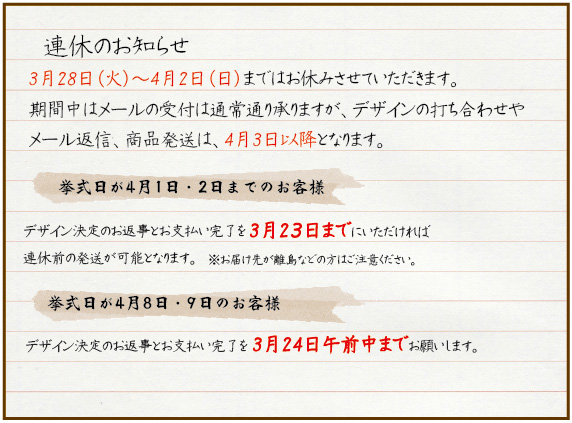 連休のお知らせ
3月28日（火）～4月2日（日）まではお休みさせていただきます。
期間中はメールの受付は通常通り承りますが、デザインの打ち合わせや
メール返信、商品発送は、4月3日以降となります。
挙式日が4月1日・2日までのお客様
デザイン決定のお返事とお支払い完了を3月23日までにいただければ
連休前の発送が可能となります。 ※お届け先が離島などの方はご注意ください。
挙式日が4月8日・9日のお客様
デザイン決定のお返事とお支払い完了を3月24日午前中までお願いします。